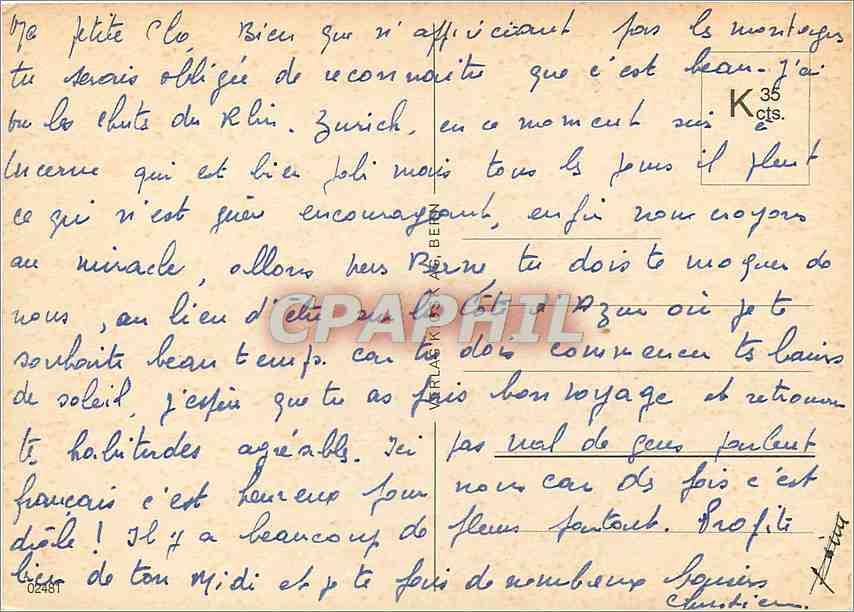 Ma petite Clo, Bien que n'appréciant pas les montagnes
tu serais obligée de reconnaitre que c'est beau. J'ai
vu les Chutes du Rhin. Zurich, en ce moment suis à
Lucerne qui est bien joli mais tous les jours il pleut
ce qui n'est guère encourageant, enfin nous croyons
au miracle, allons vers Berne tu dois te moquer de
nous, au lieu d'être sur la Côte d'Azur où je te
souhaite beau temps car tu dois commencer tes bains
de soleil, j'espère que tu as fais bon voyage et retrouver
tes habitudes agréable. Ici pas mal de gens parlent
français c'est heureux pour nous car des fois c'est
drôle ! Il y a beaucoup de fleurs partout. Profite
bien de ton Midi et je te fais de nombreux baisers
Christian.
K 35 cts.
VERLAG KIOSK AG, BERN
CPAPHIL
02481